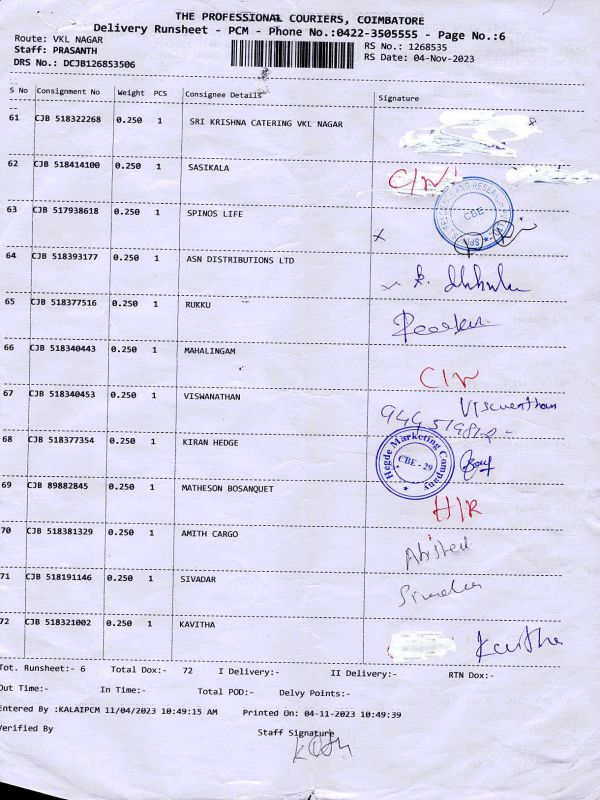 THE PROFESSIONAL COURIERS, COIMBATORE
Delivery Runsheet - PCM - Phone No.:0422-3505555 - Page No.:6
Route: VKL NAGAR
RS No.: 1268535
Staff: PRASANTH
RS Date: 04-Nov-2023
DRS No.: DCJB126853506
S No Consignment No Weight PCS Consignee Details Signature
61 CJB 518322268 0.250 1 SRI KRISHNA CATERING VKL NAGAR
62 CJB 518414100 0.250 1 SASIKALA
63 CJB 517938618 0.250 1 SPINOS LIFE
CBE
64 CJB 518393177 0.250 1 ASN DISTRIBUTIONS LTD
65 CJB 518377516 0.250 1 RUKKU
66 CJB 518340443 0.250 1 MAHALINGAM
67 CJB 518340453 0.250 1 VISWANATHAN
68 CJB 518377354 0.250 1 KIRAN HEDGE
Hegde Marketing Company
CBE - 29
69 CJB 89882845 0.250 1 MATHESON BOSANQUET
H/R
70 CJB 518381329 0.250 1 AMITH CARGO
71 CJB 518191146 0.250 1 SIVADAR
72 CJB 518321002 0.250 1 KAVITHA
Tot. Runsheet:- 6 Total Dox:- 72 I Delivery:- II Delivery:- RTN Dox:-
Out Time:- In Time:- Total POD:- Delvy Points:-
Entered By :KALAIPCM 11/04/2023 10:49:15 AM Printed On: 04-11-2023 10:49:39
Verified By Staff Signature